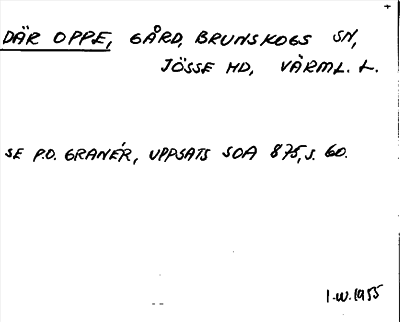 DÄR OPPE, GÅRD, BRUNSKOGS SN,
JÖSSE HD, VÄRML. L.
SE P.O. GRANÉR, UPPSATS SOA 875, S. 60.
I.W. 1955